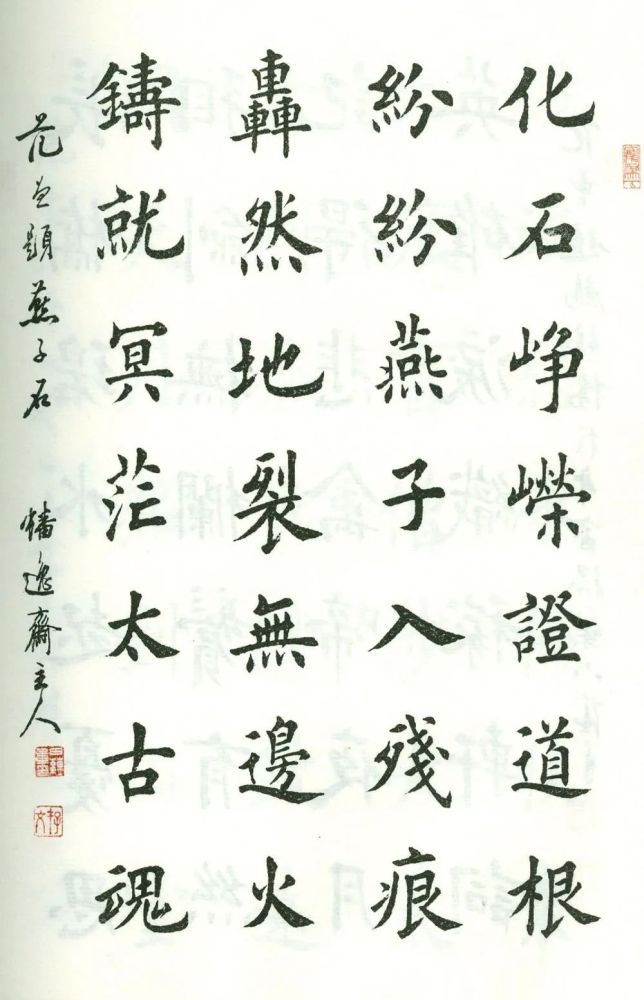 化石峥嶸證道根
紛紛燕子入殘痕
轟然地裂無邊火
鑄就冥茫太古魂
題燕子石
逸齋主人